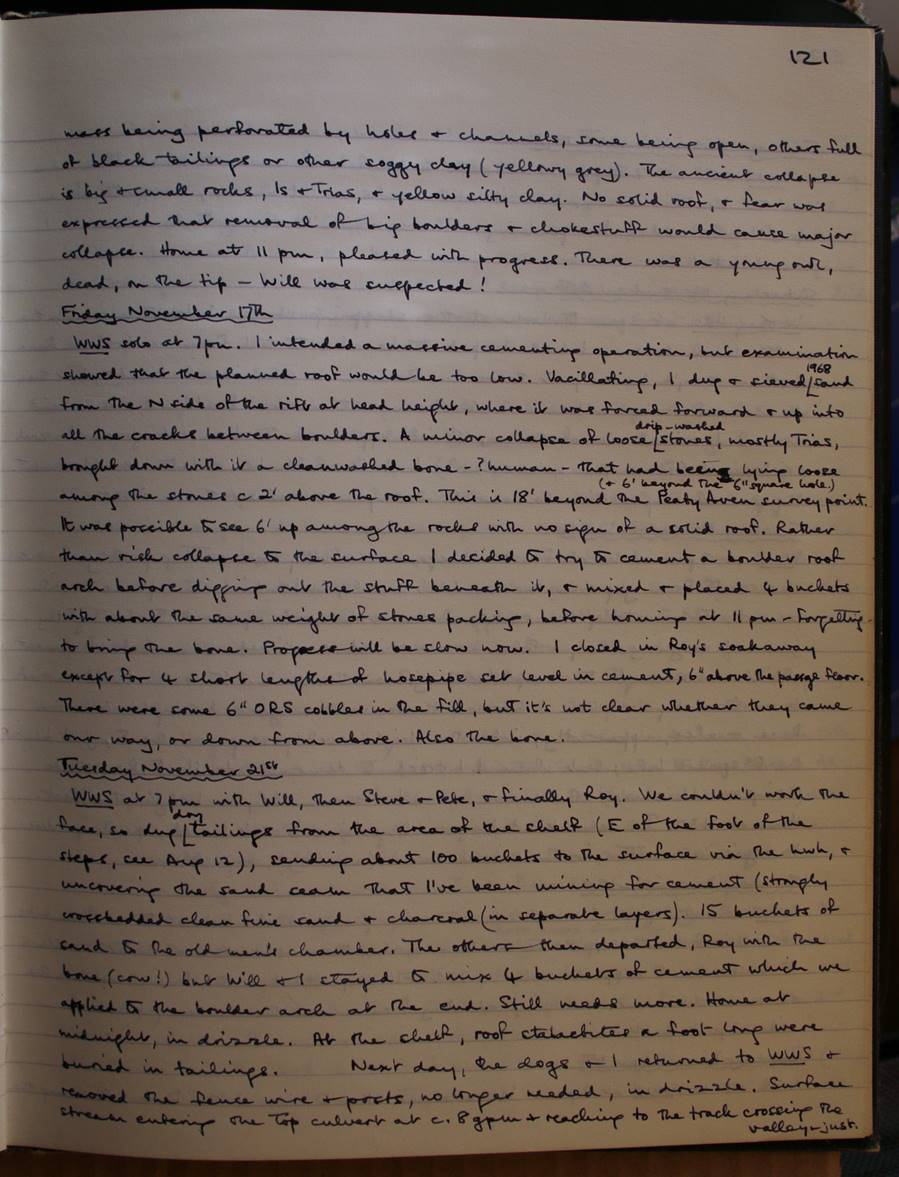 121
mass being perforated by holes + channels, some being open, others full
of black tailings or other soggy clay (yellowy grey). The ancient collapse
is big + small rocks, ls + Trias, + yellow silty clay. No solid roof, + fear was
expressed that removal of big boulders + chokestuff would cause major
collapse. Home at 11 pm, pleased with progress. There was a young owl,
dead, on the tip – Will was suspected!
Friday November 17th
WWS solo at 7pm. I intended a massive cementing operation, but examination
1968
showed that the planned roof would be too low. Vacillating, I dug + sieved sand
from the N side of the rift at head height, where it was forced forward + up into
drip-washed
all the cracks between boulders. A minor collapse of loose stones, mostly Trias,
brought down with it a cleanwashed bone – ? human – that had been lying loose
(+ 6' beyond the 6" square hole.)
among the stones c 2' above the roof. This is 18' beyond the Peaty Aven survey point.
It was possible to see 6' up among the rocks with no sign of a solid roof. Rather
than risk collapse to the surface I decided to try to cement a boulder roof
arch before digging out the stuff beneath it, + mixed + placed 4 buckets
with about the same weight of stones packing, before homing at 11 pm – forgetting
to bring the bone. Progress will be slow now. I closed in Roy's soakaway
except for 4 short lengths of hosepipe set level in cement, 6" above the passge floor.
There were some 6" ORS cobbles in the fill, but it's not clear whether they came
our way, or down from above. Also the bone.
Tuesday November 21st
WWS at 7 pm with Will, then Steve + Pete, + finally Roy. We couldn't work the
dry
face, so dug tailings from the area of the shelf (E of the foot of the
steps, see Aug 12), sending about 100 buckets to the surface via the hwh, +
uncovering the sand seam that I've been mining for cement (strongly
crossbedded clean fine sand + charcoal (in separate layers). 15 buckets of
sand to the old men's chamber. The others then departed, Roy with the
bone (cow!) but Will + I stayed to mix 4 buckets of cement which we
applied to the boulder arch at the end. Still needs more. Home at
midnight, in drizzle. At the shelf, roof stalactites a foot long were
buried in tailings. Next day, the dogs + I returned to WWS +
removed the fence wire + posts, no longer needed, in drizzle. Surface
stream entering the top culvert at c. 8 gpm + reaching to the track crossing the
valley – just.